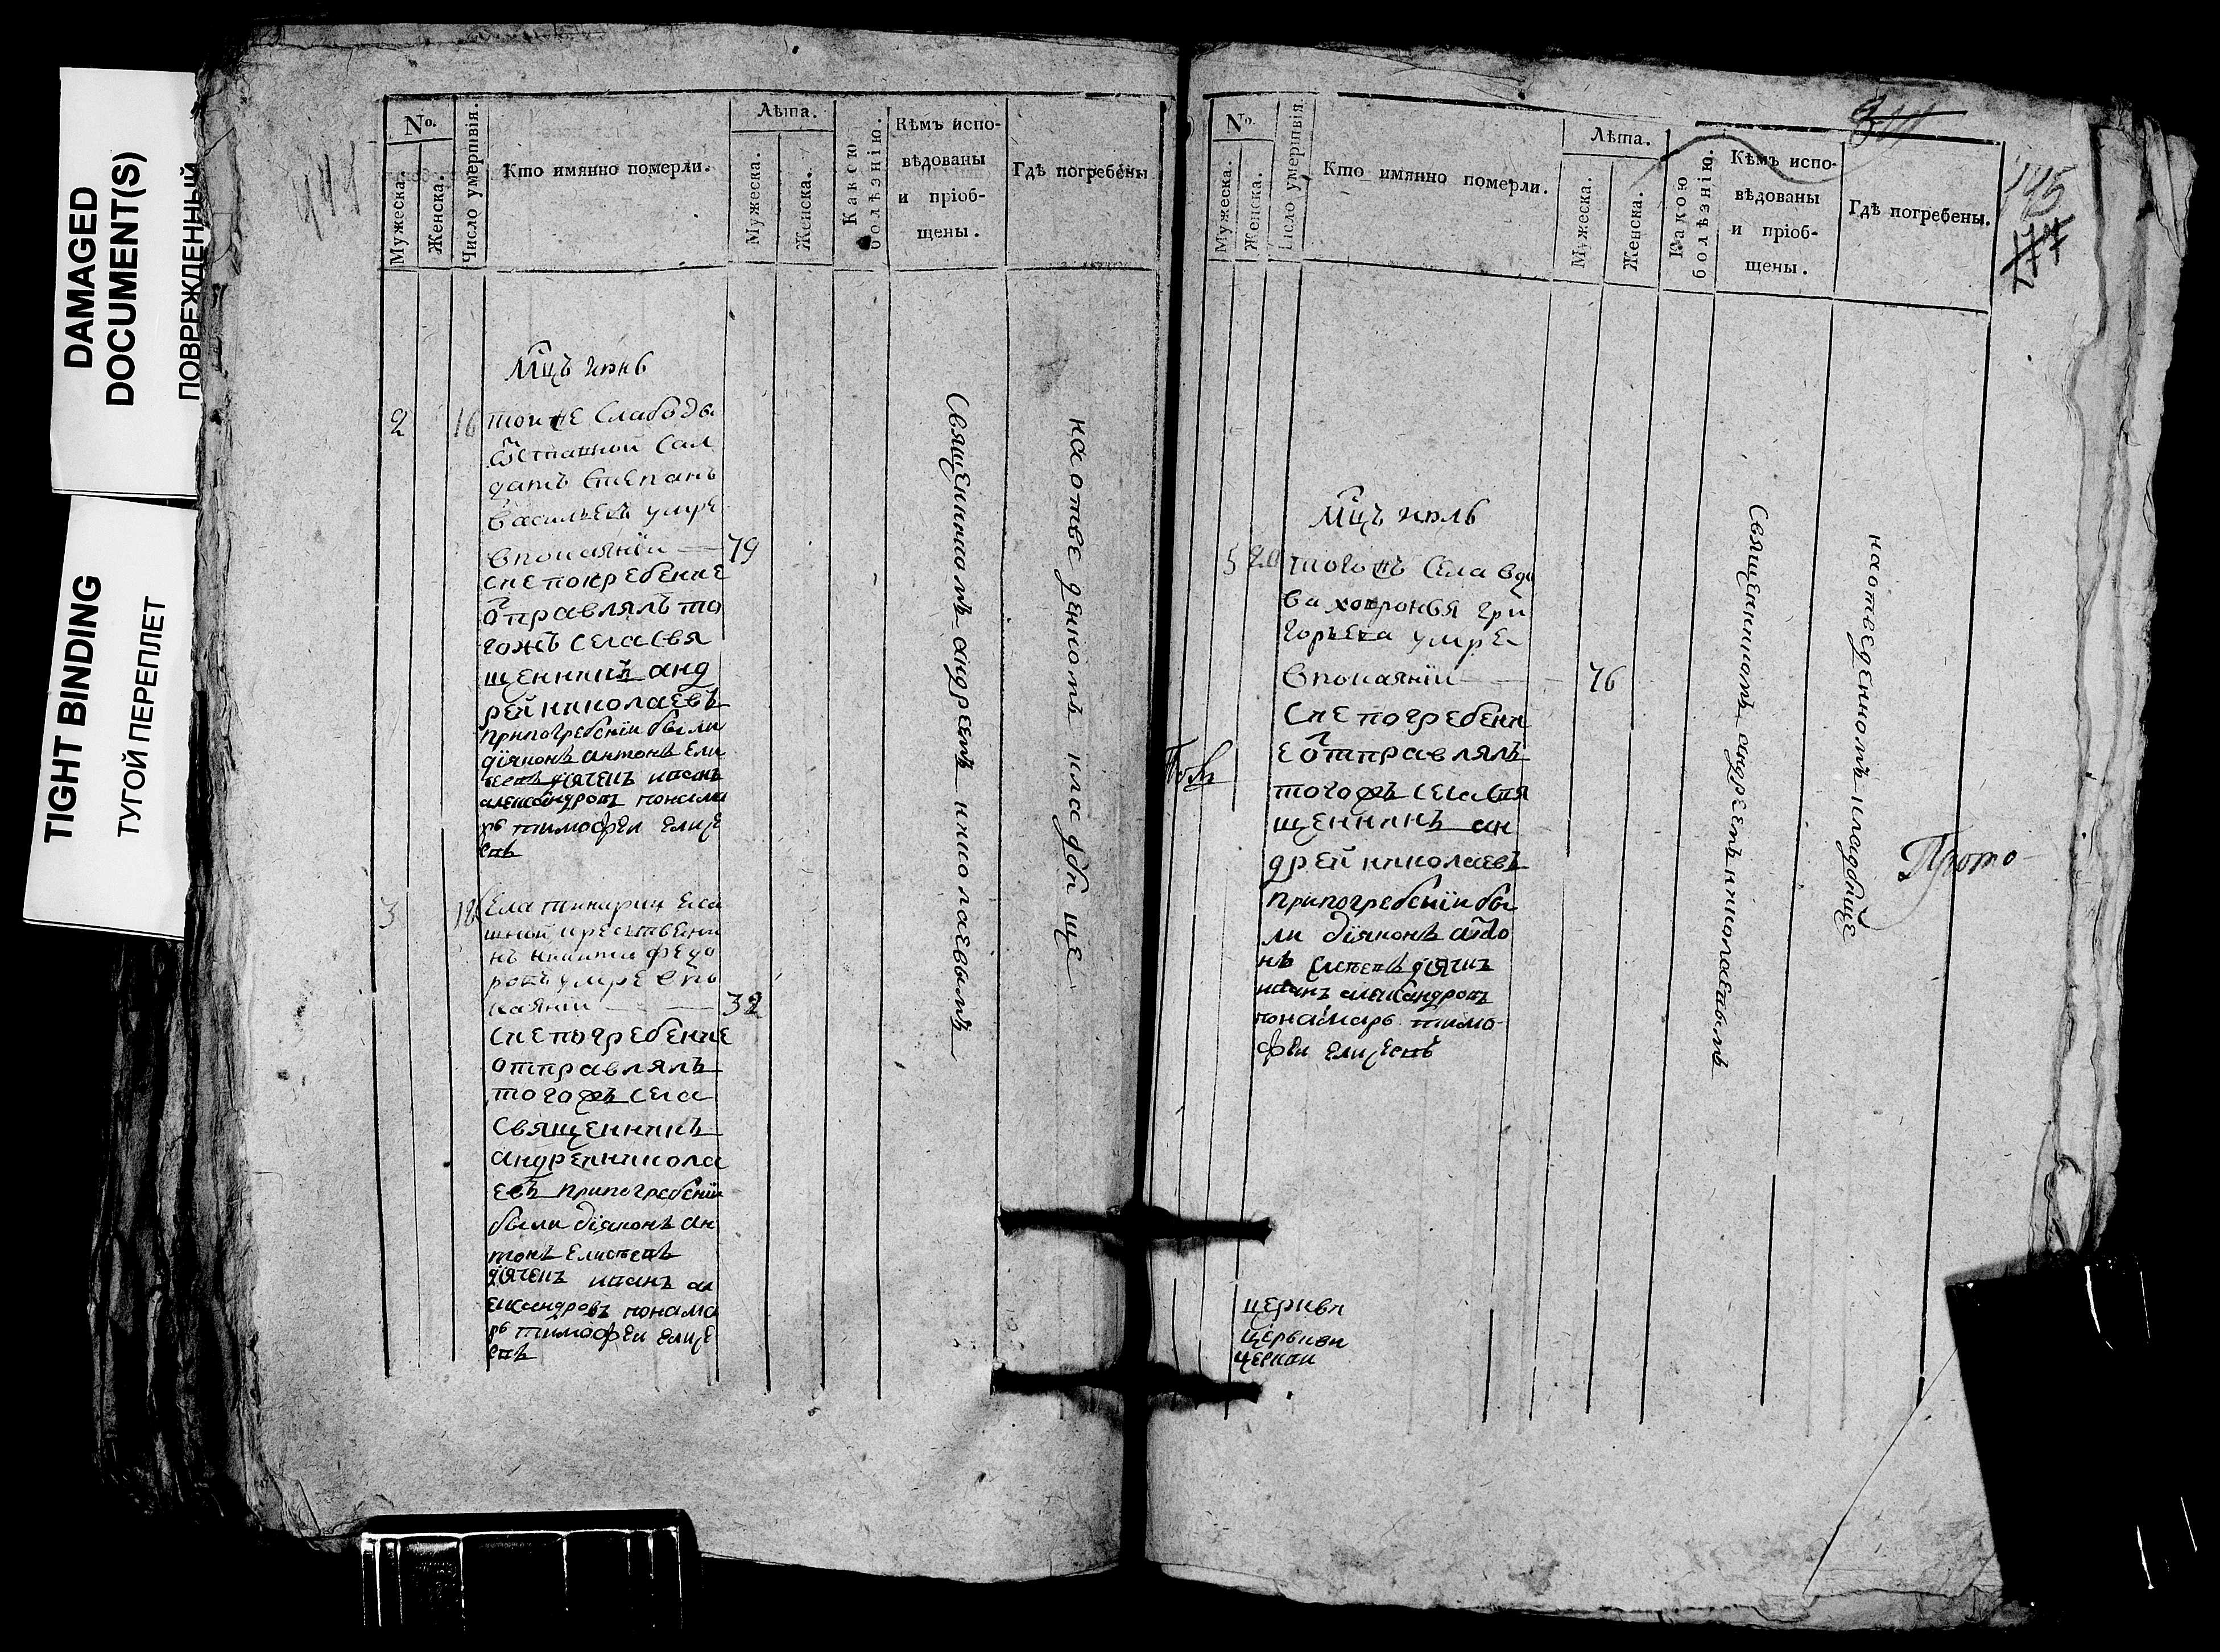 DAMAGED
DOCUMENT(S)
ПОВРЕЖДЕННЫЙ
TIGHT BINDING
ТУГОЙ ПЕРЕПЛЕТ
No.
Мужеска.
Женска.
Число умертвія.
Кто имянно померли.
Лѣта.
Мужеска.
Женска.
Какою
болѣзнію.
Кѣмъ испо-
вѣдованы
и пріоб-
щены.
Гдѣ погребены
Мцъ июнь
2 16 тои же слабоды
отставной сал
датъ Степанъ
васильевъ умре
впокаяніи — 79
сие покребение
отправлялъ то
гожъ села свя
щенникъ анд
рей николаевъ
припогребеніи были
діяконъ антонъ ели
сеевъ дячекъ иванъ
александровъ понама
рь тимофеи елисе
евъ
3 18
нъ никита федо
ровъ умре впо
каяніи — 32
сие погребение
отправлялъ
тогожъ села
священникъ
андреи никола
евъ припогребеніи
были діяконъ ан
тонъ елисеевъ
дячекъ иванъ ал
ександровъ понама
рь тимофеи елисе
евъ
Священникомъ андреемъ николаевымъ
на отведенномъ кладбище
No.
Мужеска.
Женска.
Число умертвія.
Кто имянно померли.
Лѣта.
Мужеска.
Женска.
Какою
болѣзнію.
Кѣмъ испо-
вѣдованы
и пріоб-
щены.
Гдѣ погребены.
145
Мцъ июль
5 20 тогожъ села вдо
ва ховронья гри
горьева умре
впокаяніи — 76
Сие погребени
е отправлялъ
тогожъ села свя
щенникъ ан
дрей николаевъ
припогребеніи бы
ли діяконъ анто
нъ елисеевъ дячекъ
иванъ александровъ
понамарь тимо
феи елисеевъ
Священникомъ андреемъ николаевымъ
на отведенномъ кладбище
Прото-
церкви
церькви
церкви